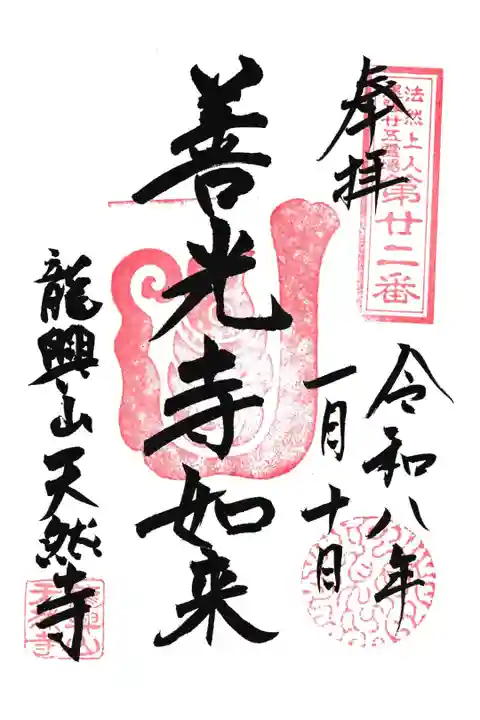 法然上人
尾張廿五霊場
第廿二番
奉拝
令和八年
一月十日
善光寺如来
龍興山天然寺
龍興山
天然寺